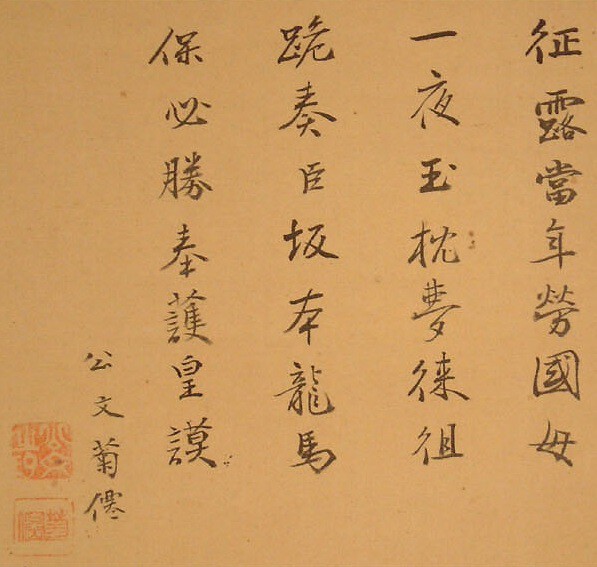 征露當年勞國母
一夜玉枕夢徠徂
跪奏臣坂本龍馬
保必勝奉護皇謨
公文菊僊